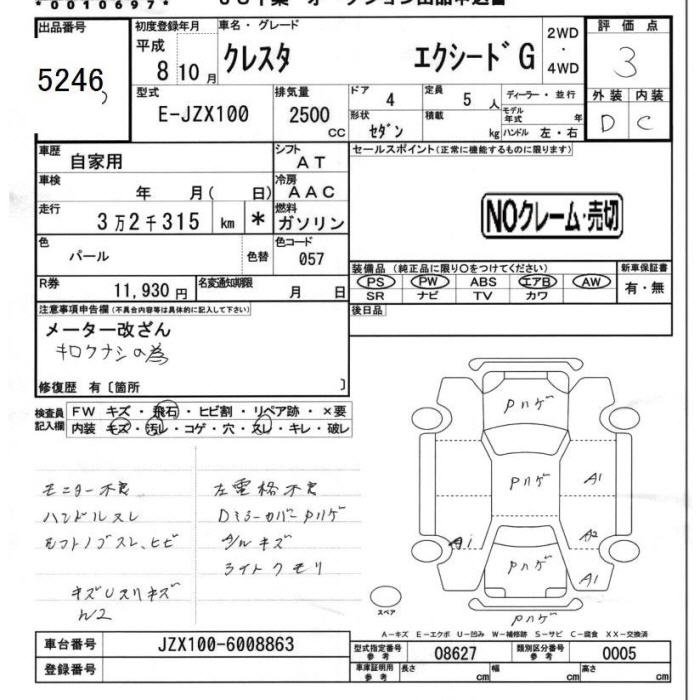 *0010697*
出品番号
5246
初度登録年月
平成
8 10月
車名・グレード
クレスタ エクシードG
2WD
・
4WD
評価点
3
型式
E-JZX100
排気量
2500
CC
ドア 4
定員 5 人
ディーラー・並行
形状 セダン
積載 kg
モデル年式 年
ハンドル 左・右
外装 内装
D C
車歴
自家用
シフト
AT
セールスポイント(正常に機能するものに限ります)
車検
年 月( 日)
冷房
AAC
走行
3万2千315 km *
燃料
ガソリン
NOクレーム・売切
色
パール
色替
色コード
057
R券
11,930円
名変通知期限
月 日
装備品 (純正品に限り○をつけてください)
PS PW ABS エアB AW
SR ナビ TV カワ
新車保証書
有・無
後日品
注意事項申告欄(不具合内容等は具体的に記入して下さい)
メーター改ざん
キロクナシの為
修復歴 有〔箇所 〕
検査員記入欄
FW キズ・飛石・ヒビ割・リペア跡・×要
内装 キズ・汚レ・コゲ・穴・スレ・キレ・破レ
モニター不良
ハンドルスレ
シフトノブスレ、ヒビ
キズUスリキズ
W2
左電格不良
DミラーカバーPハゲ
アルミキズ
ライトクモリ
Pハゲ
Pハゲ
A1
A1
A2
Pハゲ
A1
Pハゲ
スペア
A-キズ E-エクボ U-凹み W-補修跡 S-サビ C-腐食 XX-交換済
車台番号
JZX100-6008863
型式指定番号
参考
08627
類別区分番号
参考
0005
登録番号
車庫証明用
参考
長さ cm
幅 cm
高さ cm